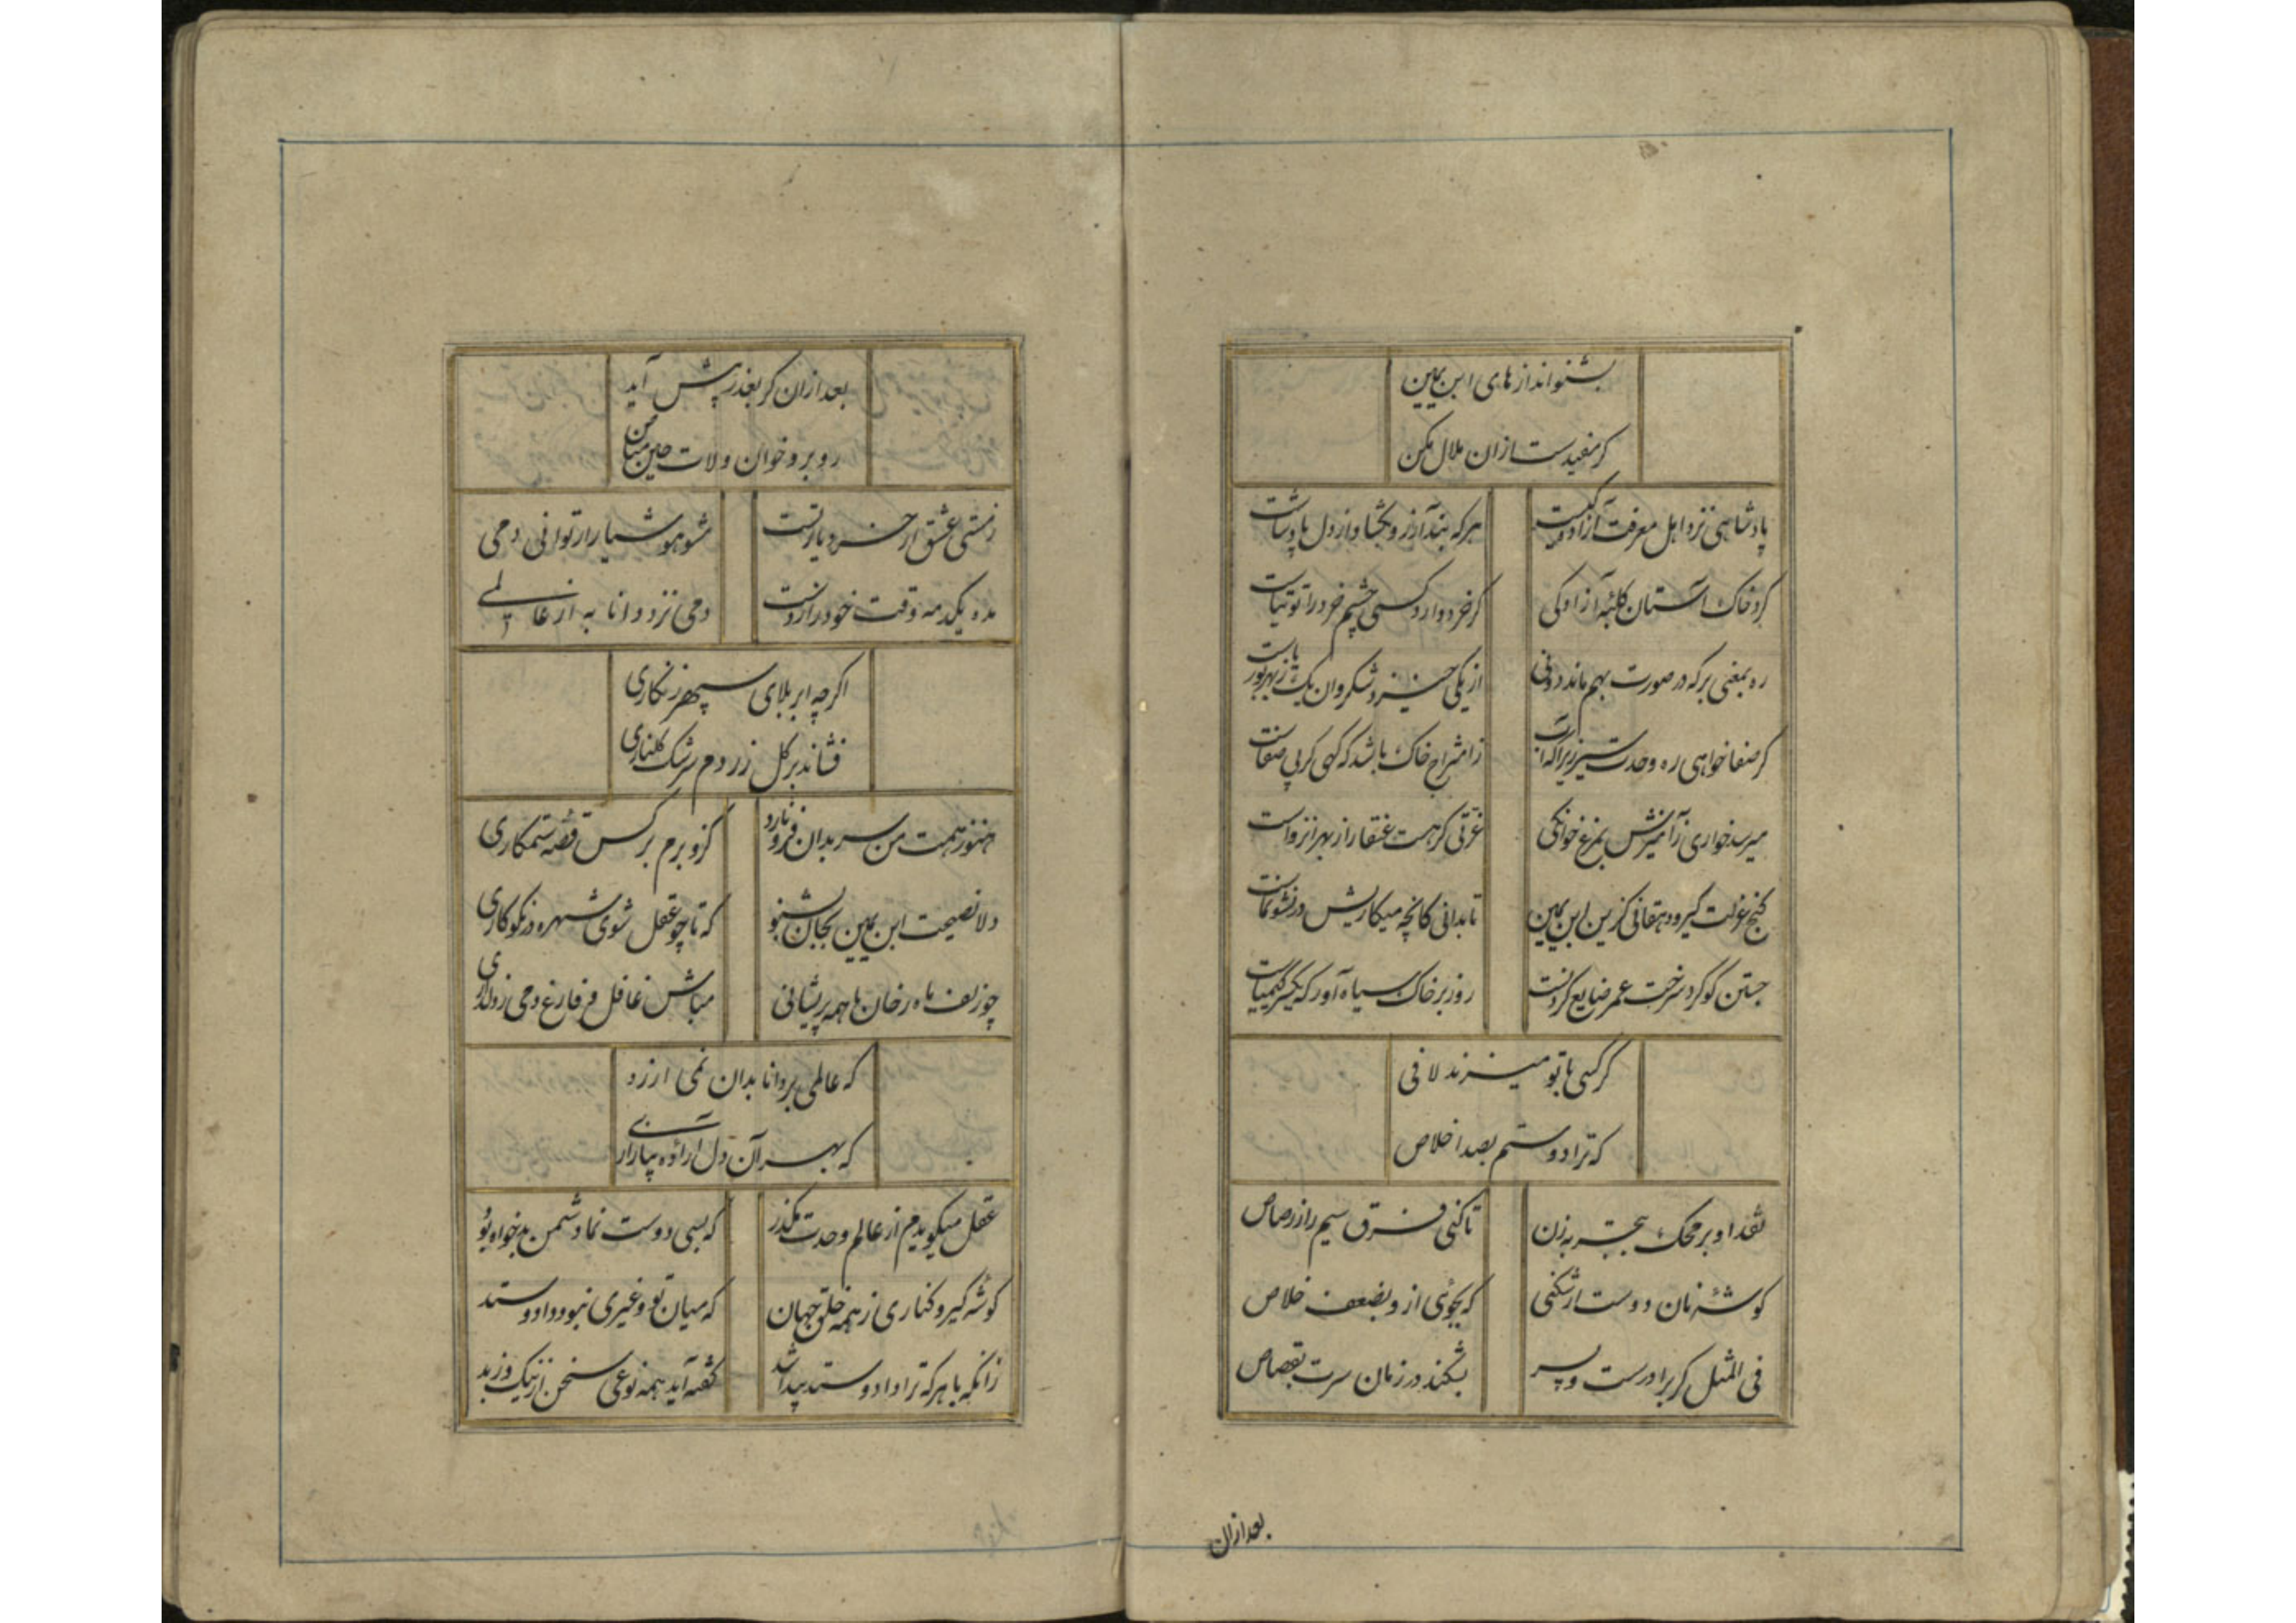 بشنو اندازهای ابن یمین
کر مفیدست ازان ملال مکن
پادشاهی نزد اهل معرفت آزادگیست هرکه بند آرزو بکشاد از دل پادشاست
کرد خاک آستان کلبه آزادکی کر خرد دارد کسی چشم خرد را توتیاست
ره بمعنی بر که در صورت بهم ماند دو نی از یکی خیزد شکر وان یک ز بهر بوریاست
کر صفا خواهی ره وحدت سپر زیرا که آب ز امتزاج خاک باشد که کهی کر بی صفاست
میرسد خواری ز آمیزش بمرغ خوانکی عزتی کر هست عنقا را از بهر انزواست
کنج عزلت کیر و دهقانی کزین ابن یمین تا بدانی کانچه میکاریش در نشو نماست
جستن کوکرد سرخت عمر ضایع کردنست روز بر خاک سیاه آور که یکسر کیمیاست
کر کسی با تو میزند لافی
که ترا دوستم بصد اخلاص
نقد او بر محک تجربه زن تا کنی فرق سیم را ز رصاص
کوشه نان دوست ار شکنی که بجوئی ازو بضعف خلاص
فی المثل کر برادرست و پسر بشکند در زمان سرت بقصاص
بعدازان
بعد ازان کر بعذر پیش آید
رو برو خوان ولات حین مناص
ز مستی عشق ار خرد یارتست مشو هوشیار ار توانی دمی
مده یکدمه وقت خود را ز دست دمی نزد دانا به از عالمی
اکرچه ابر بلای سپهر زنکاری
فشاند بر کل زردم سرشک کلناری
هنوز همت من سر بدان فرو نارد کزو برم بر کس قصه ستمکاری
دلا نصیحت ابن یمین بجان بشنو که تا چو عقل شوی شهره در نکوکاری
چو زلف ماه رخان با همه پریشانی مباش غافل و فارغ دمی ز دلداری
که عالمی بر دانا بدان نمی ارزد
که بهر آن دل آزاده بیازاری
عقل میکویدم از عالم وحدت مکذر که بسی دوست نما دشمن بدخواه بود
کوشه کیر و کناری ز همه خلق جهان که میان تو و غیری نبود داد و ستد
زانکه با هر که ترا داد و ستد پیدا شد کفته آید بهمه نوعی سخن از نیک و ز بد